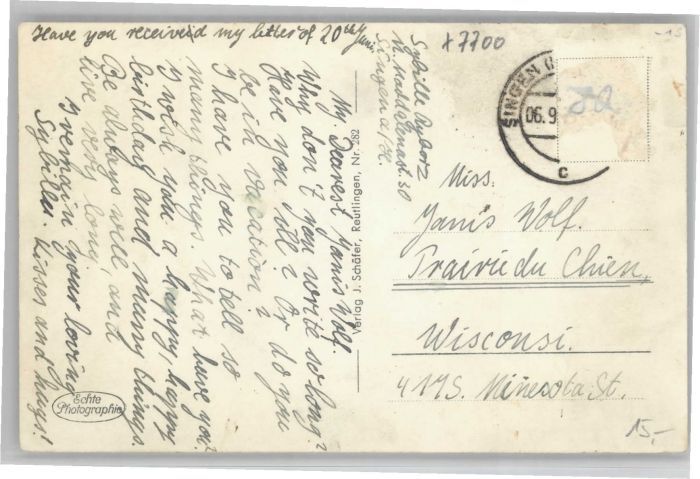 Have you received my letter of 20th Juni
x 7700
-15
Sybille
Singen a/H.
SINGEN
06.9
c
My Dearest Yanis Wolf.
Why don't you write so long?
Have you ill? Or do you
be in vacation?
I have you to tell so
many things. What have you?
I wish you a happy, happy
birthday and many things.
Be always well, and
live very long,
I remain your loving
Sybille. Kisses and hugs!
Echte
Photographie
Verlag J. Schäfer, Reutlingen, Nr. 282
Miss.
Yanis Wolf.
Prairie du Chien,
Wisconsi.
417 S. Minesota St.
15,-